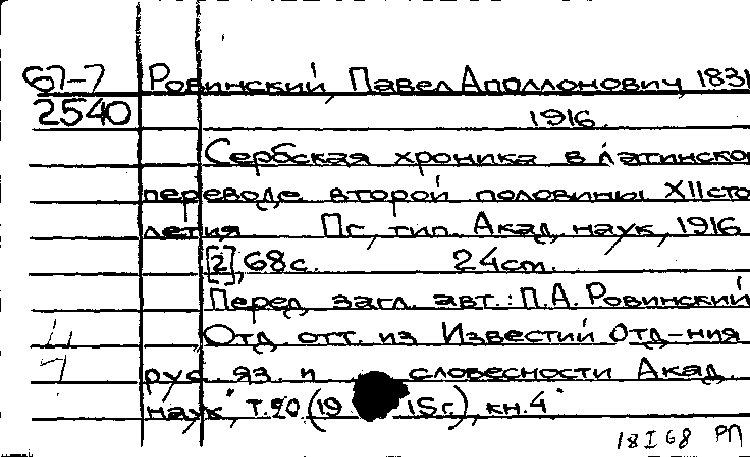 67-7 Ровинский, Павел Аполлонович, 1831
2540 1916.
Сербская хроника в латинско
переводе второй половины XII сто
летия. Пг, тип. Акад. наук, 1916
[2], 68с. 24см.
Перед загл. авт.: П.А. Ровинский
Отд. отт. из Известий Отд-ния
рус. яз. и словесности Акад.
наук", т.20 (19 15г.), кн.4
18 I 68 РП